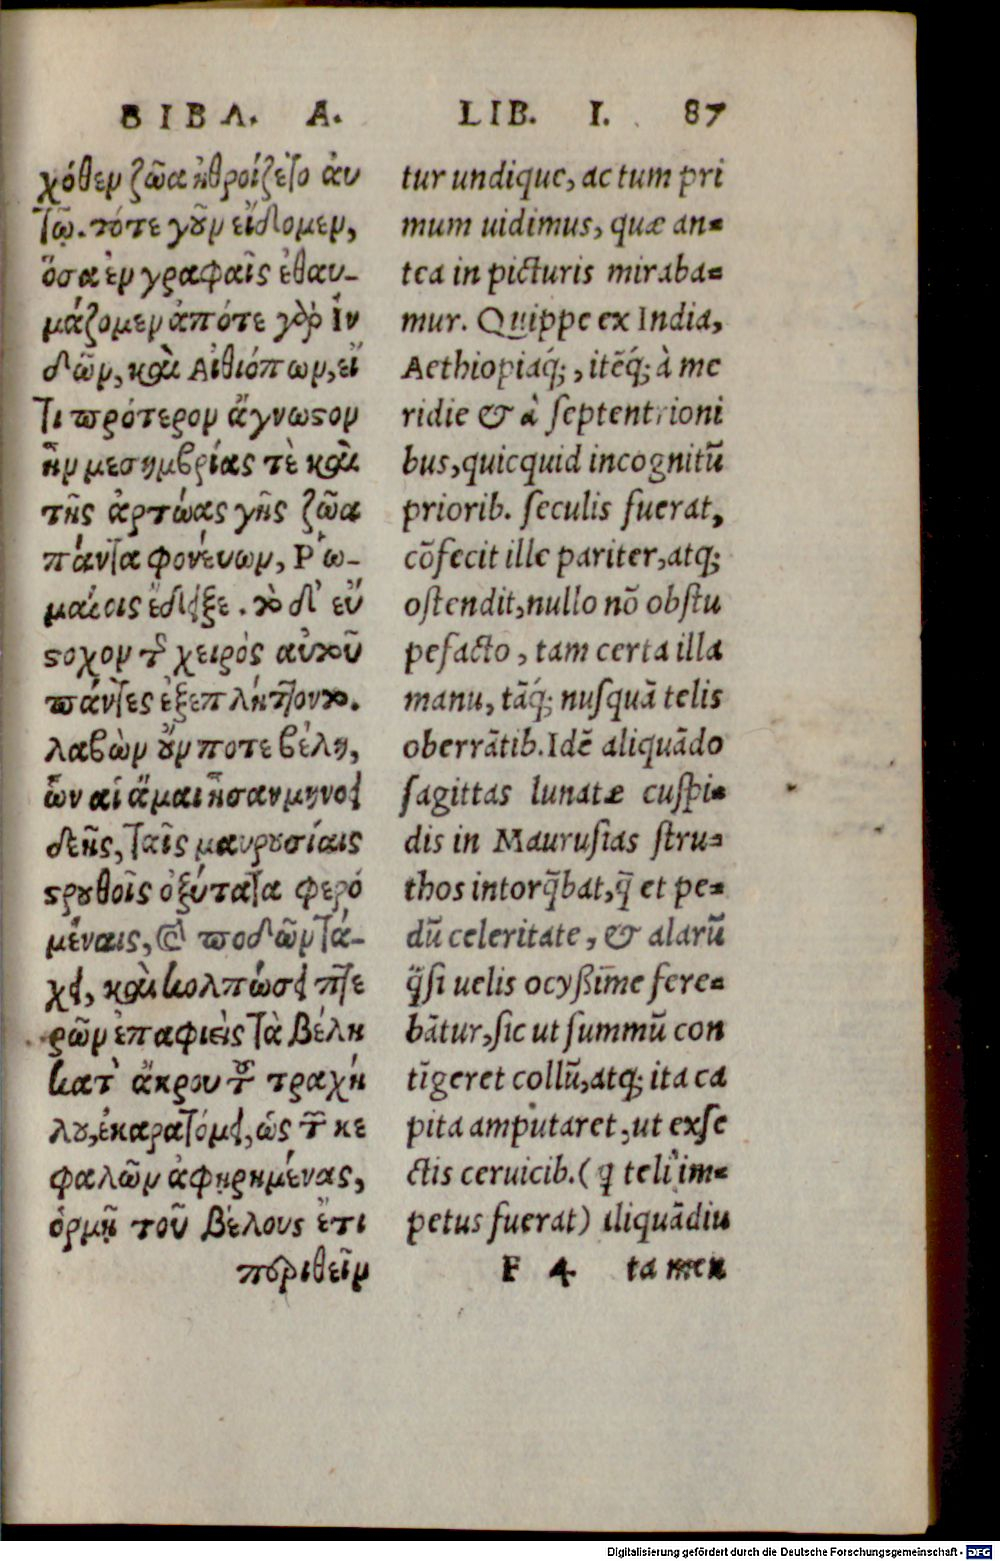 ΒΙΒΛ. Α.
χόθεν ζῶα ἠθροίζετο αὐ
τῷ. τότε γοῦν εἴδομεν,
ὅσα ἐν γραφαῖς ἐθαυ-
μάζομεν ἀπότε γὰρ Ἰν
δῶν, καὶ Αἰθιόπων, εἴ
τι πρότερον ἄγνωστον
ἦν μεσημβρίας τὲ καὶ
τῆς ἀρκτώας γῆς ζῶα
πάντα φονέυων, Ῥω-
μαίοις ἔδειξε. τὸ δ' εὔ
στοχον τῆς χειρὸς αὐτοῦ
πάντες ἐξεπλήττοντο.
λαβὼν οὖν ποτε βέλη,
ὧν αἱ ἄμαι ἦσαν μηνοει
δεῖς, ταῖς μαυρουσίαις
στρουθοῖς ὀξύτατα φερό
μέναις, καὶ ποδῶν τά-
χει, καὶ κολπώσει πτε
ρῶν ἐπαφιεὶς τὰ βέλη
κατ' ἄκρου τοῦ τραχή
λου, ἐκαρατόμει, ὡς τῶν κε
φαλῶν ἀφῃρημένας,
ὁρμῇ τοῦ βέλους ἔτι
περιθεῖν
LIB. I. 87
tur undique, ac tum pri
mum uidimus, quæ an=
tea in picturis miraba=
mur. Quippe ex India,
Aethiopiaq́;, itẽq́; à me
ridie & à ſeptentrioni
bus, quicquid incognitũ
priorib. ſeculis fuerat,
cõfecit ille pariter, atq;
oſtendit, nullo nõ obſtu
pefacto, tam certa illa
manu, tãq́; nuſquã telis
oberrãtib. Idẽ aliquãdo
ſagittas lunatæ cuſpi=
dis in Mauruſias ſtru=
thos intorq̃bat, q̃ et pe=
dũ celeritate, & alarũ
q̃ſi uelis ocyßime fere=
bãtur, ſic ut ſummũ con
tĩgeret collũ, atq; ita ca
pita amputaret, ut exſe
ctis ceruicib. (q teli im=
petus fuerat) aliquãdiu
F 4 tamen
Digitalisierung gefördert durch die Deutsche Forschungsgemeinschaft - DFG